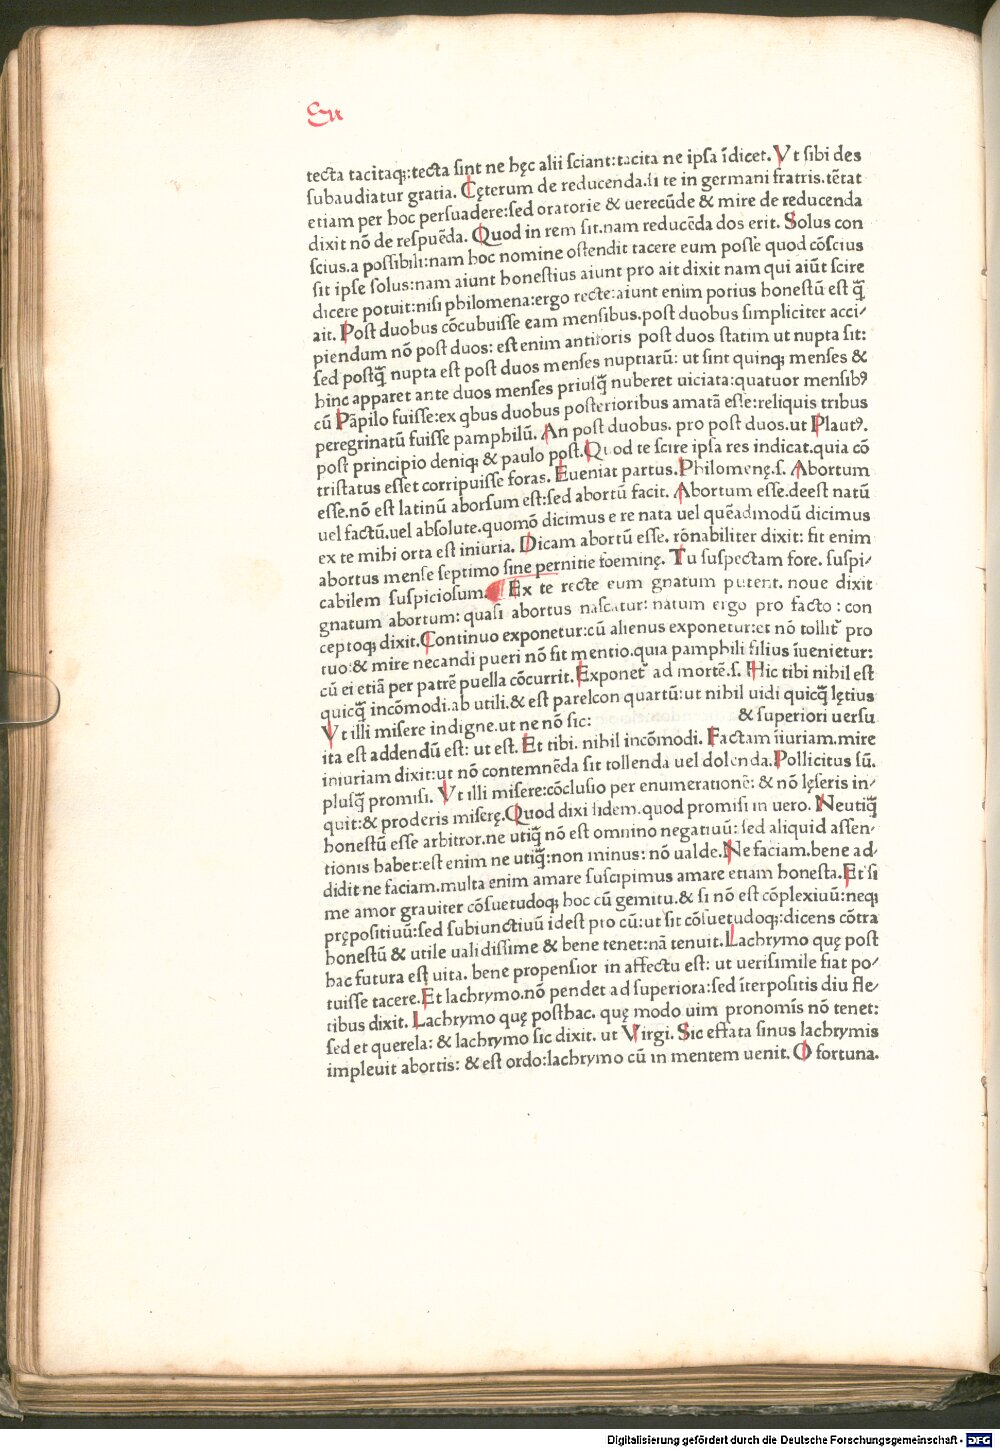 tecta tacitaq;:tecta sint ne hęc alii sciant:tacita ne ipsa īdicet. Vt sibi des
subaudiatur gratia. Cęterum de reducenda.si te in germani fratris.tētat
etiam per hoc persuadere:sed oratorie & uerecūde & mire de reducenda
dixit nō de respuēda. Quod in rem sit.nam reducēda dos erit. Solus con
scius.a possibili:nam hoc nomine ostendit tacere eum posse quod cōscius
sit ipse solus:nam aiunt honestius aiunt pro ait dixit nam qui aiūt scire
dicere potuit:nisi philomena:ergo recte:aiunt enim potius honestū est q̄
ait. Post duobus cōcubuisse eam mensibus.post duobus simpliciter acci/
piendum nō post duos: est enim antiroris post duos statim ut nupta sit:
sed postq̄ nupta est post duos menses nuptiarū: ut sint quinq; menses &
hinc apparet ante duos menses priusq̄ nuberet uiciata:quatuor mensibꝰ
cū Pāpilo fuisse:ex qbus duobus posterioribus amatā esse:reliquis tribus
peregrinatū fuisse pamphilū. An post duobus. pro post duos.ut Plautꝰ.
post principio deniq; & paulo post.Quod te scire ipsa res indicat.quia cō
tristatus esset corripuisse foras. Eueniat partus.Philomenę.s. Abortum
esse.nō est latinū aborsum est:sed abortū facit. Abortum esse.deest natū
uel factū.uel absolute.quomō dicimus e re nata uel quēadmodū dicimus
ex te mihi orta est iniuria. Dicam abortū esse. rōnabiliter dixit: fit enim
abortus mense septimo sine pernitie foeminę. Tu suspectam fore. suspi/
cabilem suspiciosum. Ex te recte eum gnatum putent. noue dixit
gnatum abortum: quasi abortus nascatur: natum ergo pro facto : con
ceptoq; dixit.Continuo exponetur:cū alienus exponetur:et nō tollit̃ pro
tuo:& mire necandi pueri nō fit mentio.quia pamphili filius īuenietur:
cū ei etiā per patrē puella cōcurrit.Exponet̃ ad mortē.s. Hic tibi nihil est
quicq̄ incōmodi.ab utili.& est parelcon quartū:ut nihil uidi quicq̄ lętius
Vt illi misere indigne.ut ne nō sic: & superiori uersu
ita est addendū est: ut est. Et tibi. nihil incōmodi. Factam īiuriam.mire
iniuriam dixit:ut nō contemnēda sit tollenda uel dolenda.Pollicitus sū.
plusq̄ promisi. Vt illi misere:cōclusio per enumerationē: & nō lęseris in/
quit:& proderis miserę.Quod dixi fidem.quod promisi in uero. Neutiq̄
honestū esse arbitror.ne utiq̄ nō est omnino negatiuū: sed aliquid assen/
tionis habet:est enim ne utiq̄:non minus: nō ualde.Ne faciam.bene ad/
didit ne faciam.multa enim amare suscipimus amare etiam honesta.Et si
me amor grauiter cōsuetudoq; hoc cū gemitu.& si nō est cōplexiuū:neq;
prępositiuū:sed subiunctiuū idest pro cū:ut sit cōsuetudoq;:dicens cōtra
honestū & utile ualidissime & bene tenet:nā tenuit.Lachrymo quę post
hac futura est uita. bene propensior in affectu est: ut uerisimile fiat po/
tuisse tacere.Et lachrymo.nō pendet ad superiora:sed īterpositis diu fle/
tibus dixit. Lachrymo quę posthac. quę modo uim pronomīs nō tenet:
sed et querela: & lachrymo sic dixit. ut Virgi. Sic effata sinus lachrymis
impleuit abortis: & est ordo:lachrymo cū in mentem uenit. O fortuna.
Digitalisierung gefördert durch die Deutsche Forschungsgemeinschaft - DFG